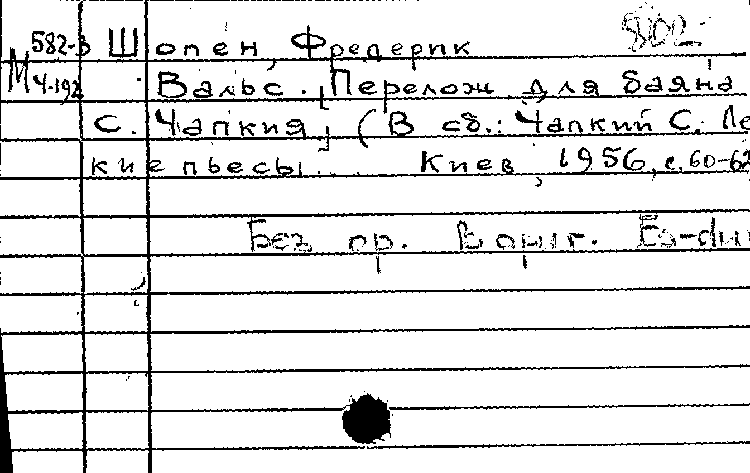 582-3 Шопен, Фредерик 802
М Ч-192 Вальс. [Перелож. для баяна
С. Чапкия] (В сб.: Чапкий С. Ле
кие пьесы. Киев, 1956, с. 60-62
Без ор. В ориг. Es-dur